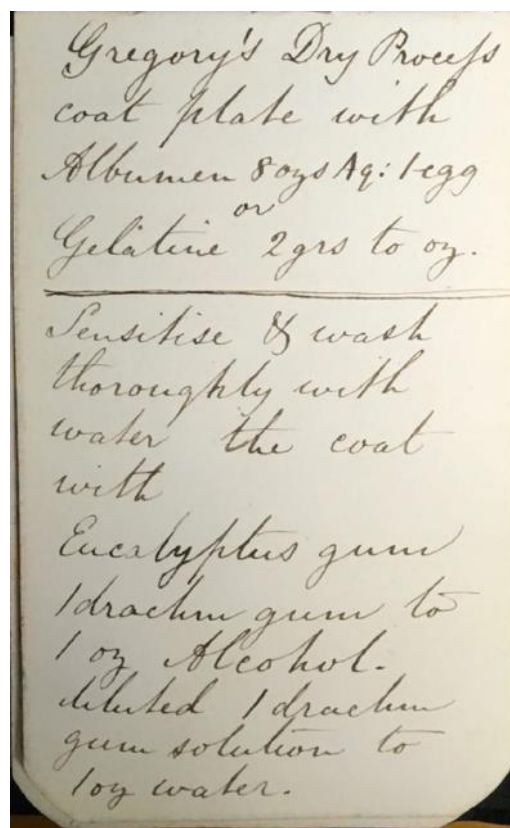 Gregory's Dry Process
coat plate with
Albumen 8 ozs Aq: 1 egg
or
Gelatine 2 grs to oz.
Sensitise & wash
thoroughly with
water the coat
with
Eucalyptus gum
1 drachm gum to
1 oz Alcohol.
diluted 1 drachm
gum solution to
1 oz water.